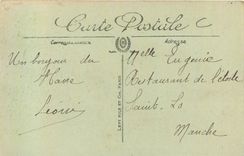 Carte Postale
Correspondance
Adresse
Un bonjour du
Havre
Léonie
LEVY FILS ET CIE, PARIS
Melle Eugénie
Restaurant de l'étoile
Saint-Lo
Manche